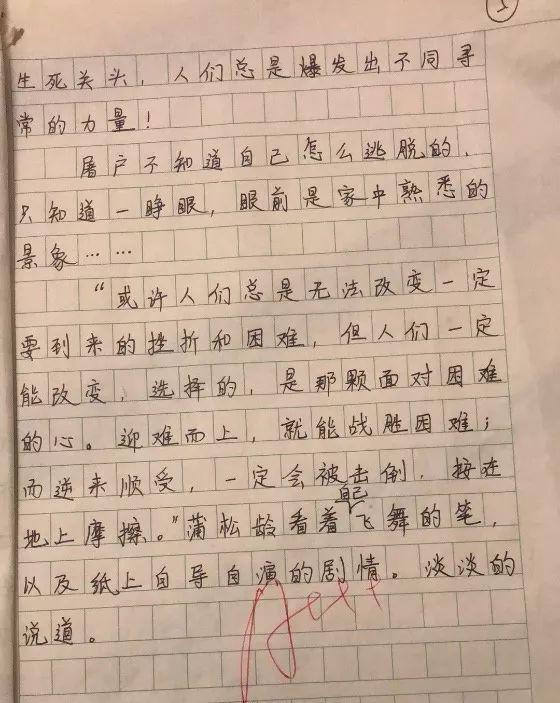 5
生死关头，人们总是爆发出不同寻
常的力量！
屠户不知道自己怎么逃脱的，
只知道一睁眼，眼前是家中熟悉的
景象……
“或许人们总是无法改变一定
要到来的挫折和困难，但人们一定
能改变，选择的，是那颗面对困难
的心。迎难而上，就能战胜困难；
而逆来顺受，一定会被击倒，按在
地上摩擦。”蒲松龄看着自己飞舞的笔，
以及纸上自导自演的剧情。淡淡的
说道。
A+++